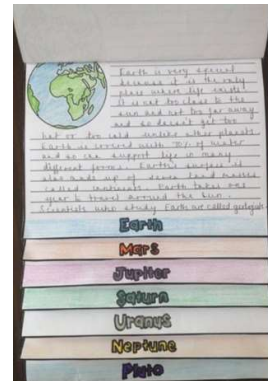 Earth is very special
because it is the only
place where life exists
It is not too close to the
sun and not too far away
and so doesn't get too
hot or too cold unlike other planets
Earth is covered with 70% of water
and so can support life in many
different forms. Earth's surface is
also made up of seven land masses
called continents. Earth takes one
year to travel around the Sun.
Scientists who study Earth are called geologists
Earth
Mars
Jupiter
Saturn
Uranus
Neptune
Pluto